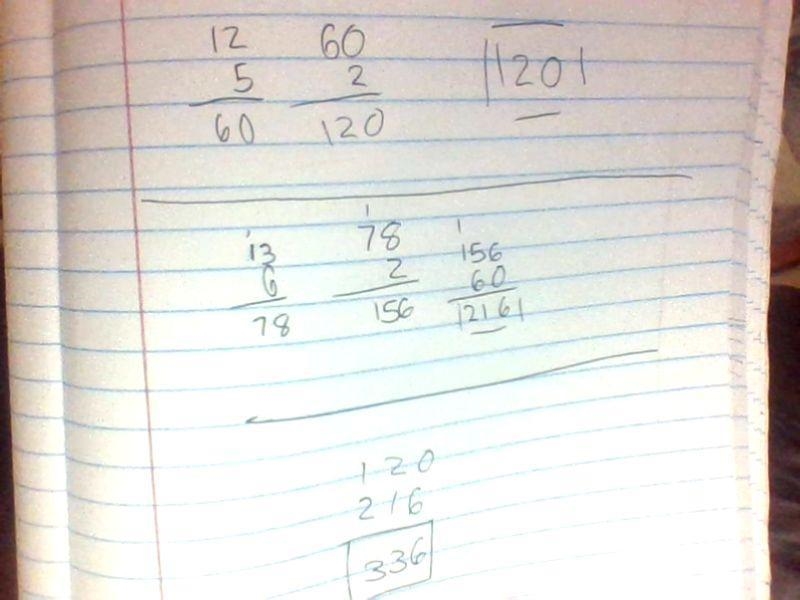 12 60
5 2 |120|
60 120
1 1 1
13 78 156
6 2 60
78 156 |216|
120
216
336